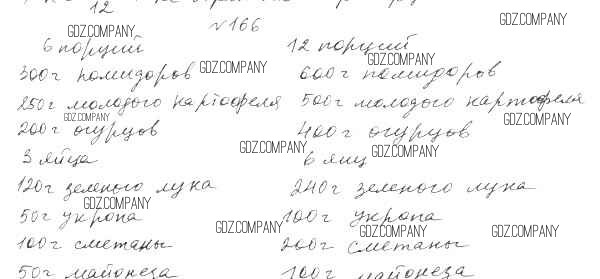 12
№166
6 порций 12 порций
300г помидоров 600г помидоров
250г молодого картофеля 500г молодого картофеля
200г огурцов 400г огурцов
3 яйца 6 яиц
120г зеленого лука 240г зеленого лука
50г укропа 100г укропа
100г сметаны 200г сметаны
50г майонеза 100г майонеза
GDZ.COMPANY
GDZ.COMPANY
GDZ.COMPANY
GDZ.COMPANY
GDZ.COMPANY
GDZ.COMPANY
GDZ.COMPANY
GDZ.COMPANY
GDZ.COMPANY
GDZ.COMPANY
GDZ.COMPANY
GDZ.COMPANY